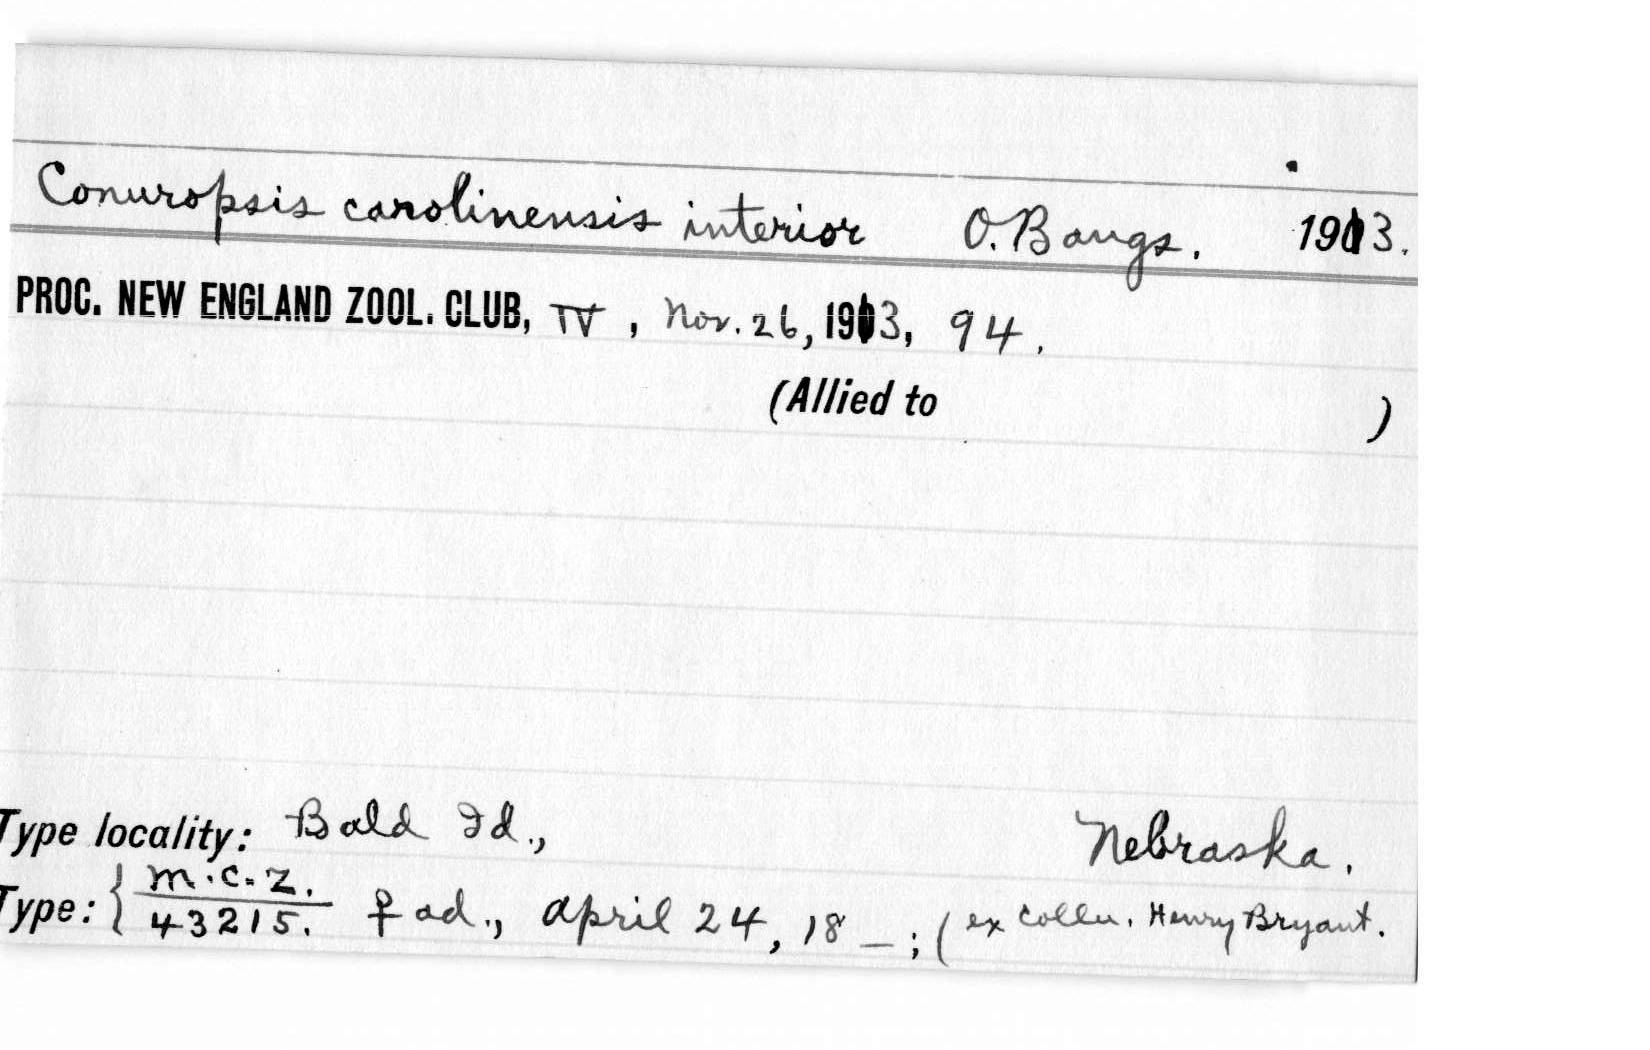 Conuropsis carolinensis interior O. Bangs. 1913.
PROC. NEW ENGLAND ZOOL. CLUB, IV, Nov. 26, 1913, 94.
(Allied to )
Type locality: Bald Id., Nebraska.
Type: { M.C.Z. 43215. ♀ ad., April 24, 18—; (ex Colln. Henry Bryant.